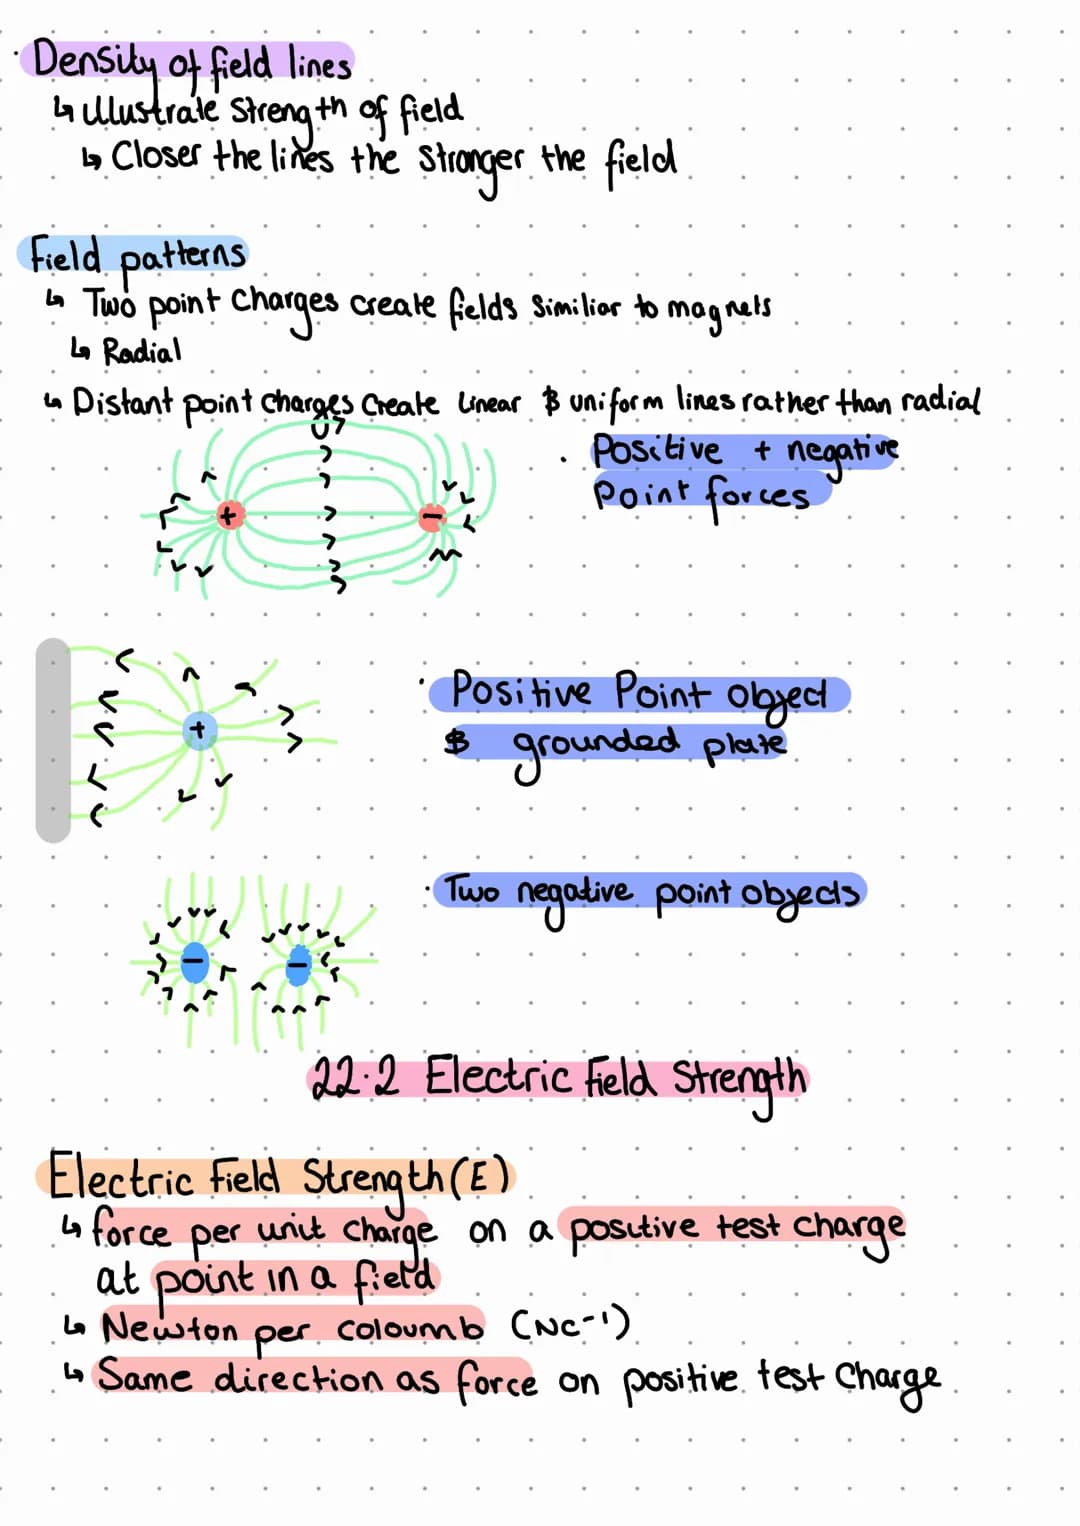 Density of field lines
↳ illustrate strength of field
↳ Closer the lines the stronger the field
Field patterns
↳ Two point charges create fields similiar to magnets
↳ Radial
↳ Distant point charges create linear & uniform lines rather than radial
Positive + negative
Point forces
+
-
Positive Point object
& grounded plate
+
Two negative point objects
- -
22.2 Electric Field Strength
Electric Field Strength (E)
↳ force per unit charge on a positive test charge
at point in a field
↳ Newton per coloumb (NC-1)
↳ Same direction as force on positive test charge